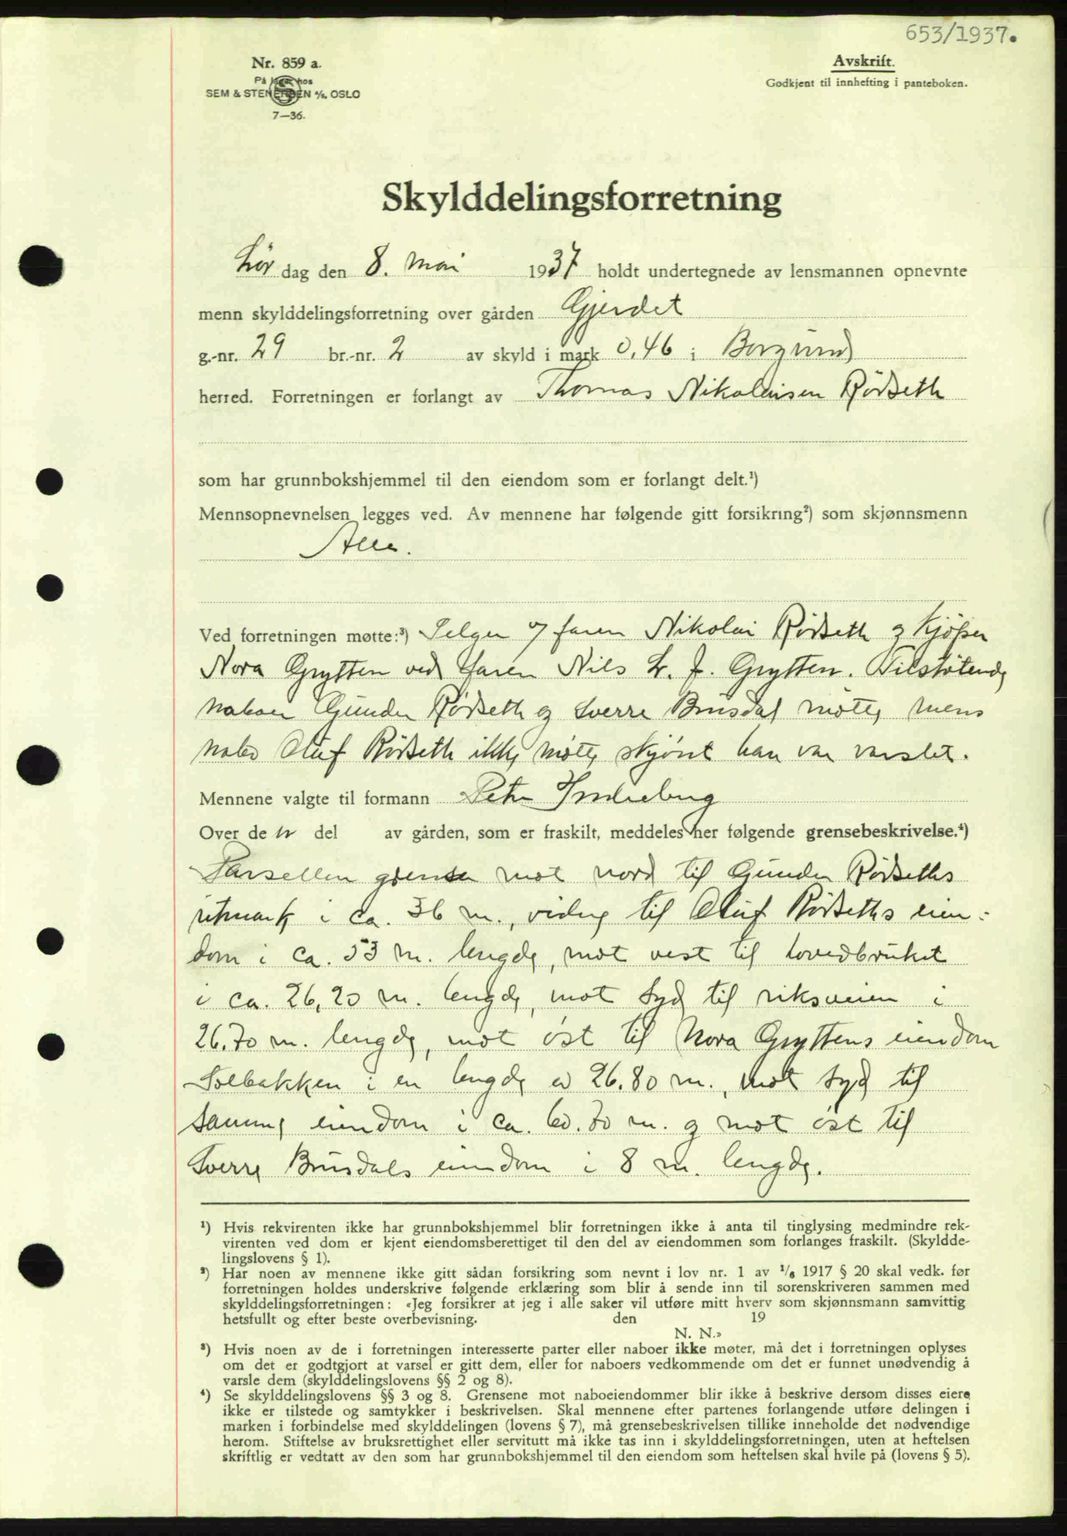 653/1937.
Nr. 859 a.
På lager hos
SEM & STENERSEN A/S, OSLO
7—36.
Avskrift.
Godkjent til innhefting i panteboken.
Skylddelingsforretning
Lør dag den 8. mai 1937 holdt undertegnede av lensmannen opnevnte
menn skylddelingsforretning over gården Gjerdet
g.-nr. 29 br.-nr. 2 av skyld i mark 0,46 i Borgund
herred. Forretningen er forlangt av Thomas Nikolaisen Rødseth
som har grunnbokshjemmel til den eiendom som er forlangt delt.¹)
Mennsopnevnelsen legges ved. Av mennene har følgende gitt forsikring²) som skjønnsmenn
Alle.
Ved forretningen møtte:³) Selger v/ faren Nikolai Rødseth og kjøper
Nora Grytten ved faren Nils L. J. Grytten. Tilstøtende
naboer Gunder Rødseth og Sverre Brusdal møtte mens
nabo Oluf Rødseth ikke møtte skjønt han var varslet.
Mennene valgte til formann Petter Indreberg
Over de n del av gården, som er fraskilt, meddeles her følgende grensebeskrivelse.⁴)
Parsellen grenser mot nord til Gunder Rødseths
utmark i ca. 36 m., videre til Oluf Rødseths eien-
dom i ca. 53 m. lengde, mot vest til hovedbruket
i ca. 26,20 m. lengde, mot syd til riksveien i
26.70 m. lengde, mot øst til Nora Gryttens eiendom
Solbakken i en lengde av 26.80 m., mot syd til
samme eiendom i ca. 60.70 m. og mot øst til
Sverre Brusdals eiendom i 8 m. lengde.
¹) Hvis rekvirenten ikke har grunnbokshjemmel blir forretningen ikke å anta til tinglysing medmindre rek-
virenten ved dom er kjent eiendomsberettiget til den del av eiendommen som forlanges fraskilt. (Skyldde-
lingslovens § 1).
²) Har noen av mennene ikke gitt sådan forsikring som nevnt i lov nr. 1 av ¹/₆ 1917 § 20 skal vedk. før
forretningen holdes underskrive følgende erklæring som blir å sende inn til sorenskriveren sammen med
skylddelingsforretningen: «Jeg forsikrer at jeg i alle saker vil utføre mitt hverv som skjønnsmann samvittig
hetsfullt og efter beste overbevisning. den 19
N. N.»
³) Hvis noen av de i forretningen interesserte parter eller naboer ikke møter, må det i forretningen oplyses
om det er godtgjort at varsel er gitt dem, eller for naboers vedkommende om det er funnet unødvendig å
varsle dem (skylddelingslovens §§ 2 og 8).
⁴) Se skylddelingslovens §§ 3 og 8. Grensene mot naboeiendommer blir ikke å beskrive dersom disses eiere
ikke er tilstede og samtykker i beskrivelsen. Skal mennene efter partenes forlangende utføre delingen i
marken i forbindelse med skylddelingen (lovens § 7), må grensebeskrivelsen tillike inneholde det nødvendige
herom. Stiftelse av bruksrettighet eller servitutt må ikke tas inn i skylddelingsforretningen, uten at heftelsen
skriftlig er vedtatt av den som har grunnbokshjemmel til den eiendom som heftelsen skal hvile på (lovens § 5).